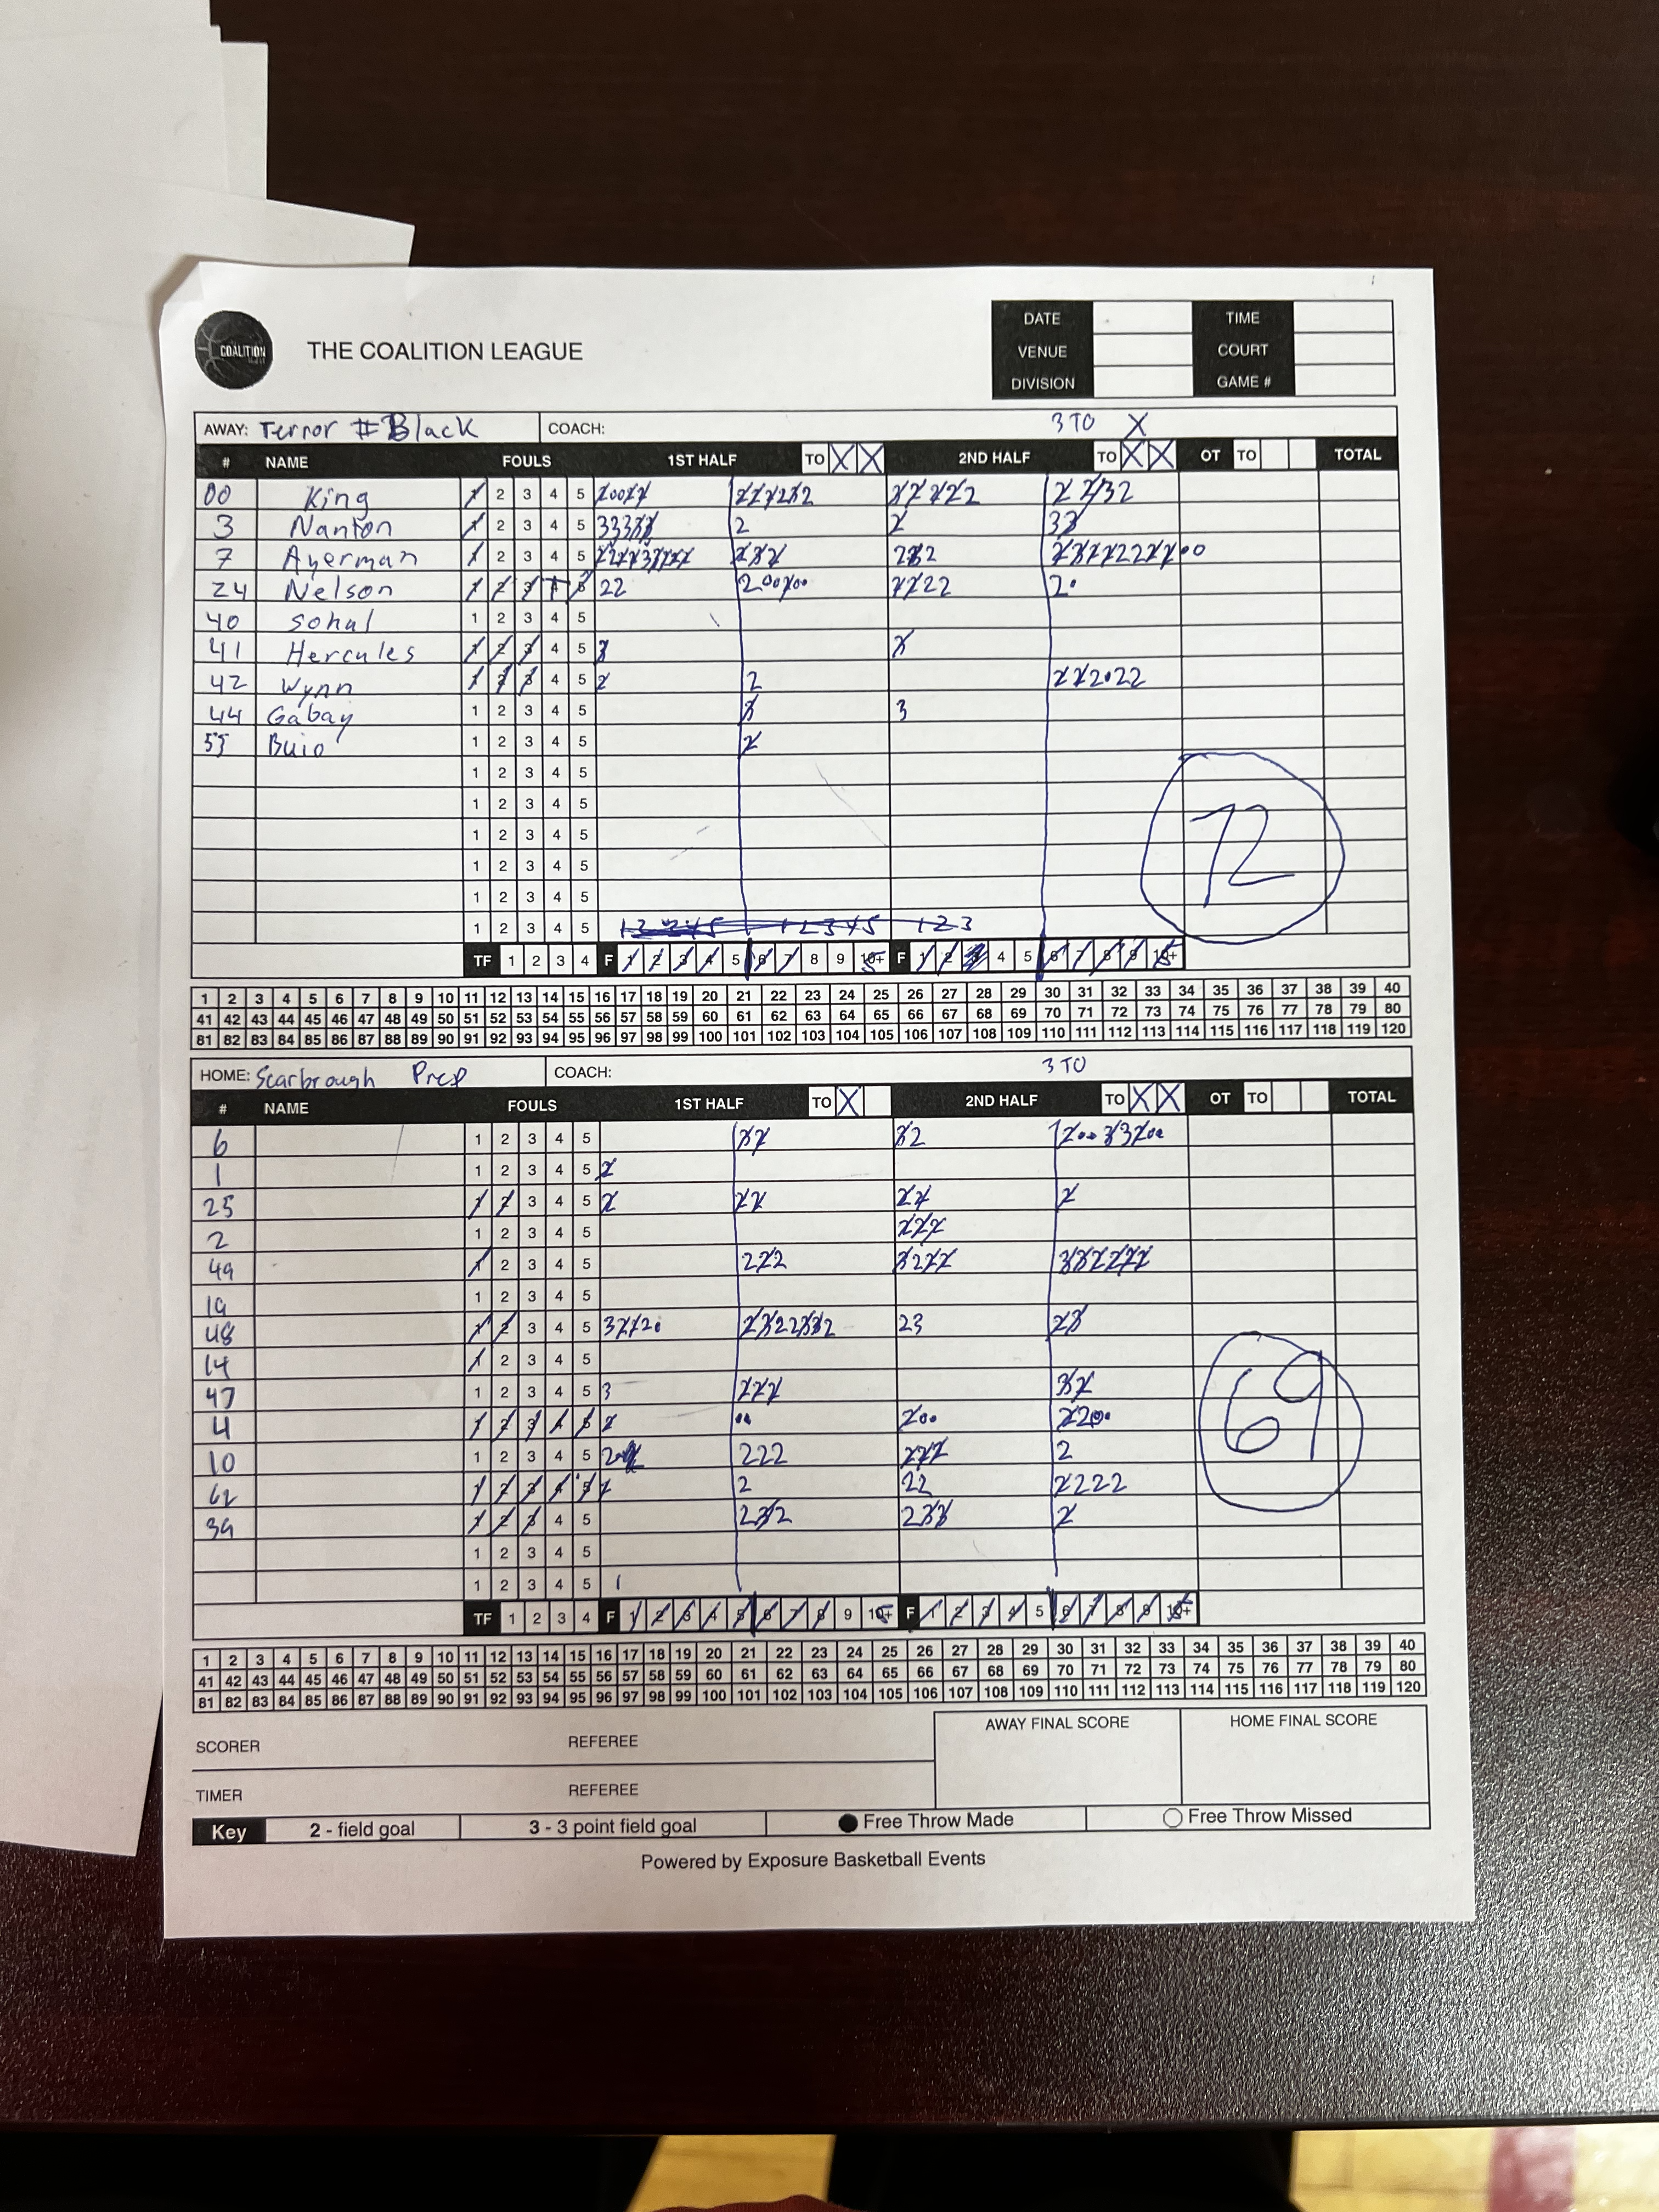 COALITION
THE COALITION LEAGUE
DATE TIME
VENUE COURT
DIVISION GAME #
AWAY: Terror #Black COACH: 3 TO X
# NAME FOULS 1ST HALF TO X X 2ND HALF TO X X OT TO TOTAL
00 King 1 2 3 4 5
3 Nanton 1 2 3 4 5 2 2 33
7 Ayerman 1 2 3 4 5
24 Nelson 1 2 3 4 5 22
40 Sohal 1 2 3 4 5
41 Hercules 1 2 3 4 5
42 Wynn 1 2 3 4 5 2 2
44 Gabay 1 2 3 4 5 3 3
55 Buio 1 2 3 4 5 2
1 2 3 4 5
1 2 3 4 5
1 2 3 4 5
1 2 3 4 5
1 2 3 4 5
1 2 3 4 5 1 2 3
72
TF 1 2 3 4 F 1 2 3 4 5 6 7 8 9 10+ F 1 2 3 4 5 6 7 8 9 10+
1 2 3 4 5 6 7 8 9 10 11 12 13 14 15 16 17 18 19 20 21 22 23 24 25 26 27 28 29 30 31 32 33 34 35 36 37 38 39 40
41 42 43 44 45 46 47 48 49 50 51 52 53 54 55 56 57 58 59 60 61 62 63 64 65 66 67 68 69 70 71 72 73 74 75 76 77 78 79 80
81 82 83 84 85 86 87 88 89 90 91 92 93 94 95 96 97 98 99 100 101 102 103 104 105 106 107 108 109 110 111 112 113 114 115 116 117 118 119 120
HOME: Scarbrough Prep COACH: 3 TO
# NAME FOULS 1ST HALF TO X 2ND HALF TO X X OT TO TOTAL
6 1 2 3 4 5
1 1 2 3 4 5 2
25 1 2 3 4 5
2 1 2 3 4 5
49 1 2 3 4 5 222
19 1 2 3 4 5
48 1 2 3 4 5 23
14 1 2 3 4 5
47 1 2 3 4 5 3
4 1 2 3 4 5
10 1 2 3 4 5 222 2
62 1 2 3 4 5 2 22 2222
39 1 2 3 4 5 232 2
1 2 3 4 5
1 2 3 4 5 1
69
TF 1 2 3 4 F 1 2 3 4 5 6 7 8 9 10+ F 1 2 3 4 5 6 7 8 9 10+
1 2 3 4 5 6 7 8 9 10 11 12 13 14 15 16 17 18 19 20 21 22 23 24 25 26 27 28 29 30 31 32 33 34 35 36 37 38 39 40
41 42 43 44 45 46 47 48 49 50 51 52 53 54 55 56 57 58 59 60 61 62 63 64 65 66 67 68 69 70 71 72 73 74 75 76 77 78 79 80
81 82 83 84 85 86 87 88 89 90 91 92 93 94 95 96 97 98 99 100 101 102 103 104 105 106 107 108 109 110 111 112 113 114 115 116 117 118 119 120
SCORER REFEREE AWAY FINAL SCORE HOME FINAL SCORE
TIMER REFEREE
Key 2 - field goal 3 - 3 point field goal Free Throw Made Free Throw Missed
Powered by Exposure Basketball Events